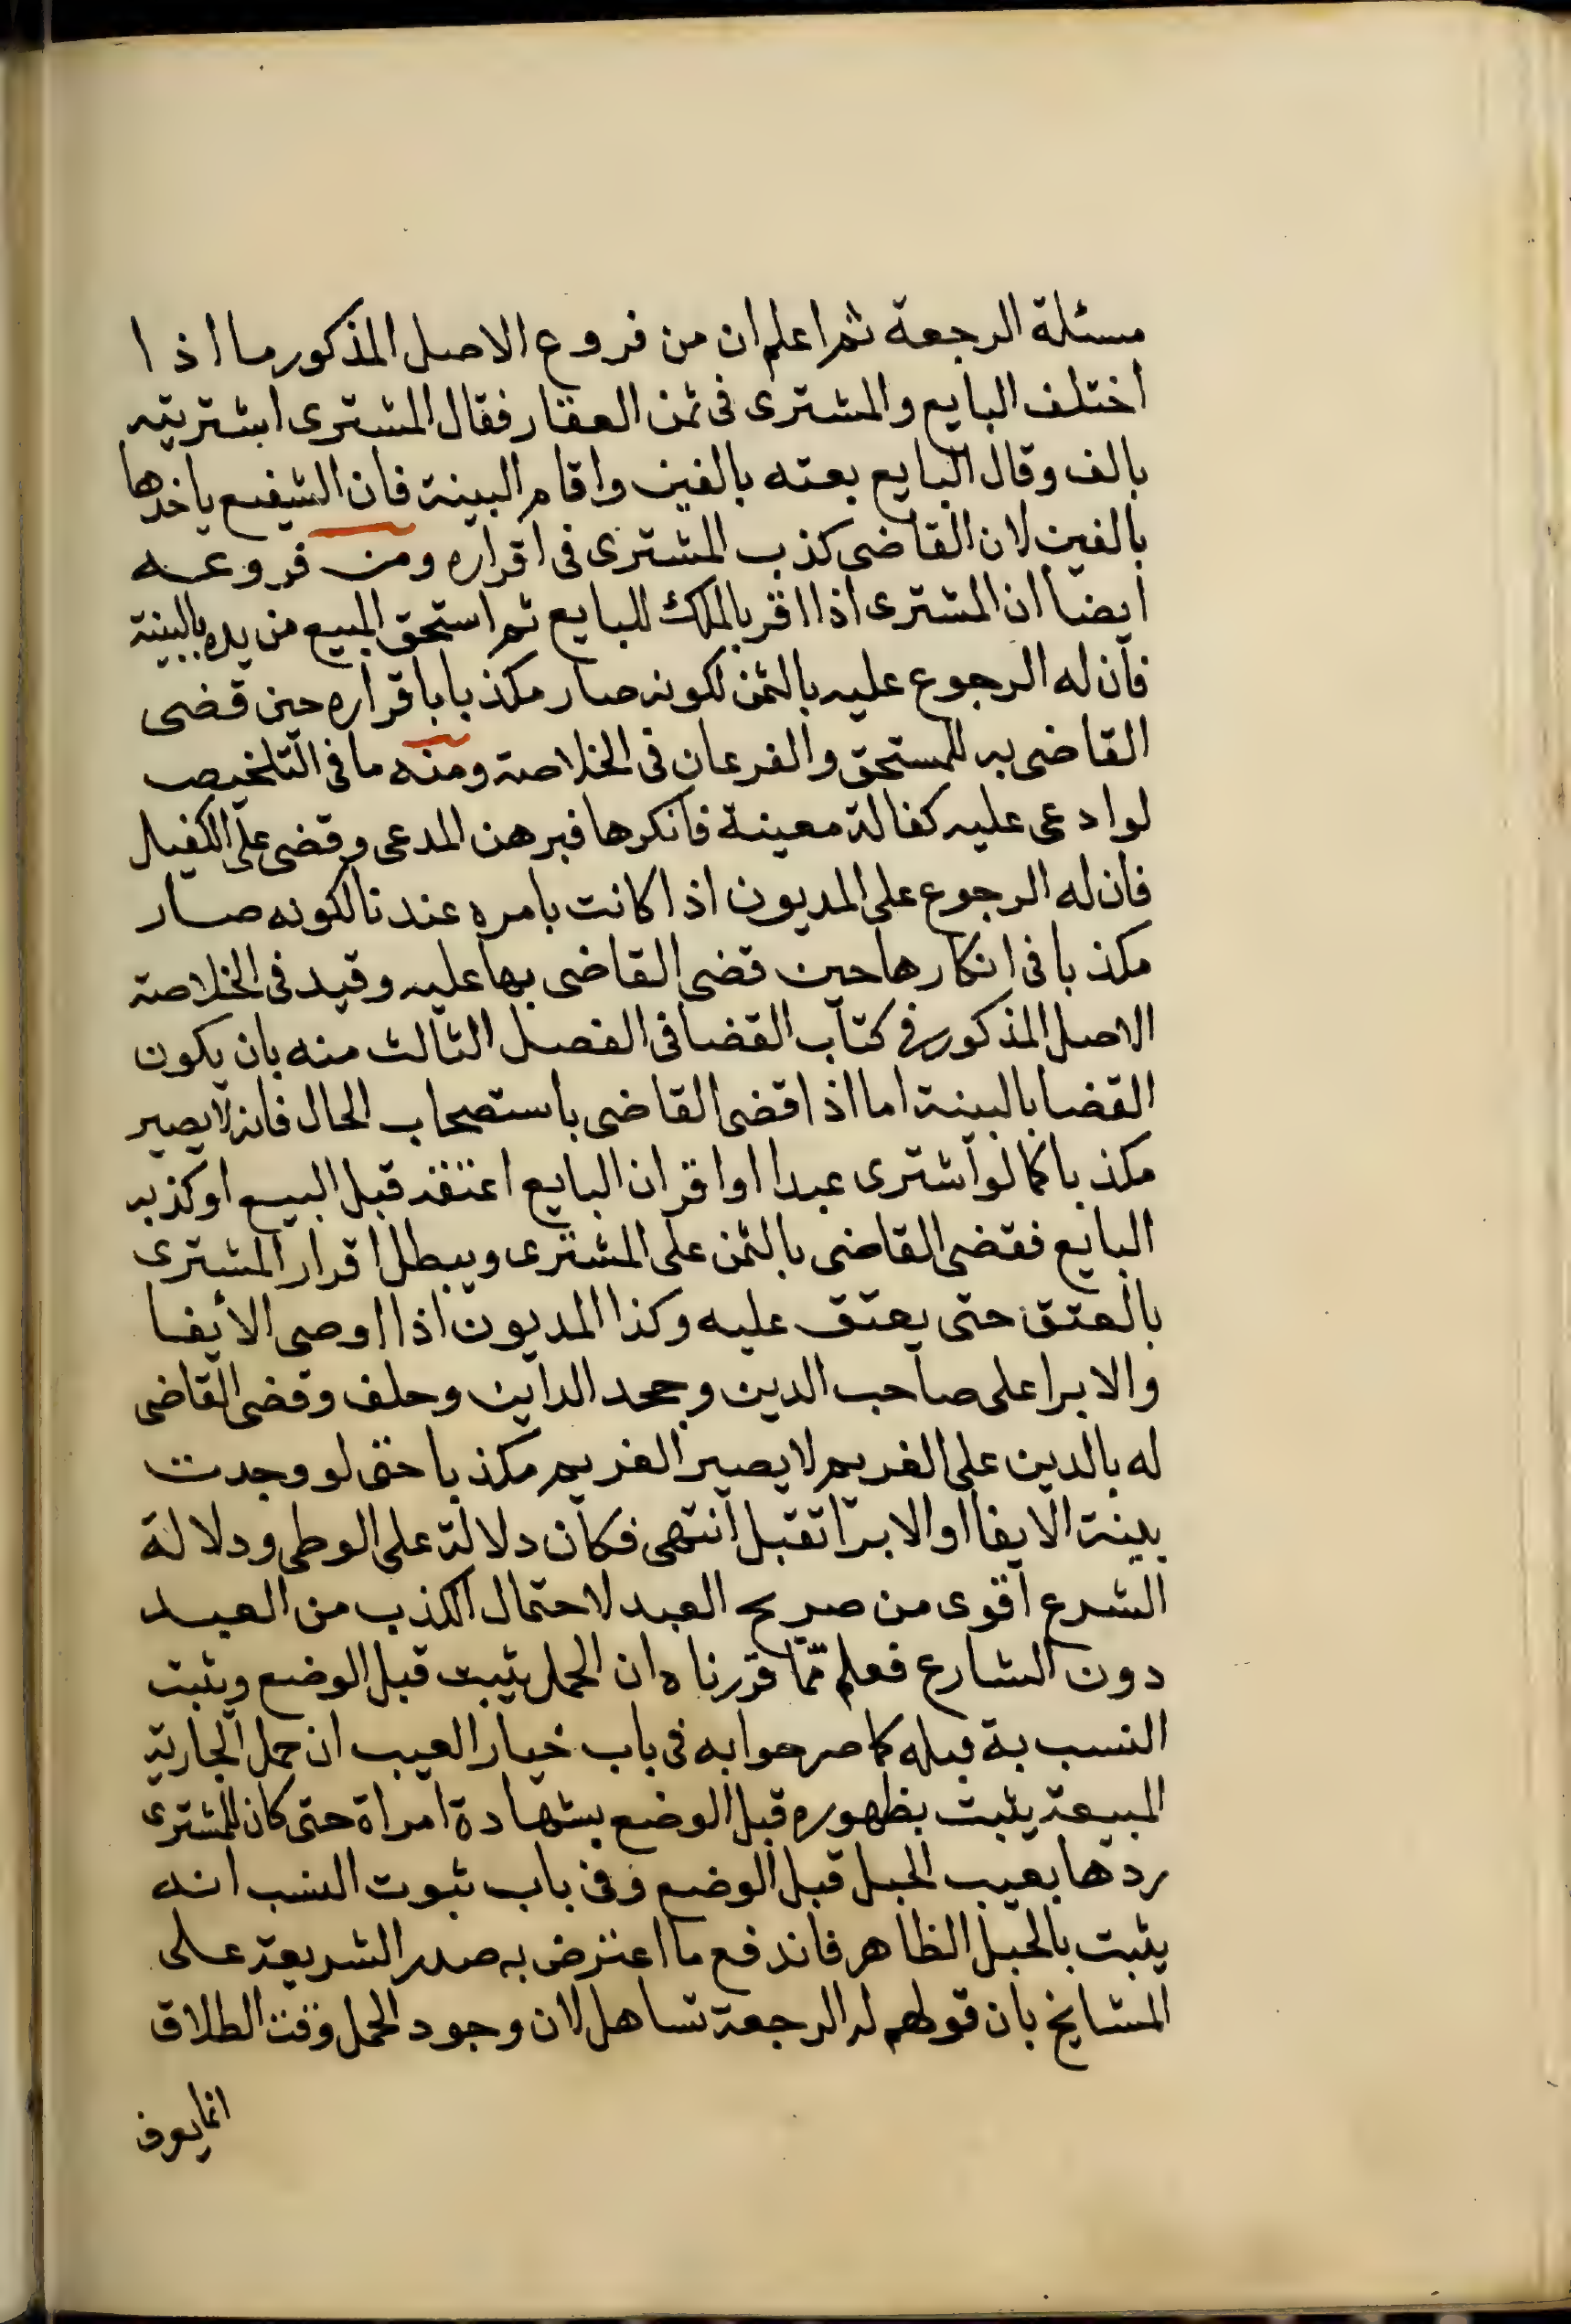 مسئلة الرجعة ثم اعلم ان من فروع الاصل المذكور ما اذا
اختلف البايع والمشترى فى ثمن العقار فقال المشترى اشتريته
بالف وقال البايع بعته بالفين واقام البينة فان الشفيع ياخذها
بالفين لان القاضى كذب المشترى فى اقراره ومن فروعه
ايضا ان المشترى اذا اقر بالملك للبايع ثم استحق المبيع من يده بالبينة
فان له الرجوع عليه بالثمن لكونه صار مكذبا باقراره حين قضى
القاضى به للمستحق والفرعان فى الخلاصة ومنه ما فى التلخيص
لو ادعى عليه كفالة معينة فانكرها فبرهن المدعى وقضى على الكفيل
فان له الرجوع على المديون اذا كانت بامره عندنا لكونه صار
مكذبا فى انكارها حين قضى القاضى بها عليه وقيد فى الخلاصة
الاصل المذكور فى كتاب القضا فى الفصل الثالث منه بان يكون
القضا بالبينة اما اذا قضى القاضى باستصحاب الحال فانه لا يصير
مكذبا كما لو اشترى عبدا او اقر ان البايع اعتقه قبل البيع او كذبه
البايع فقضى القاضى بالثمن على المشترى ويبطل اقرار المشترى
بالعتق حتى يعتق عليه وكذا المديون اذا اوصى الأيفا
والابرا على صاحب الدين وجحد الداين وحلف وقضى القاضى
له بالدين على الغريم لا يصير الغريم مكذبا حتى لو وجدت
بينة الايفا او الابرا تقبل انتهى فكان دلالة على الوطى ودلالة
الشرع اقوى من صريح العبد لاحتمال الكذب من العبد
دون الشارع فعلم مما قررناه ان الحمل يثبت قبل الوضع ويثبت
النسب به قبله كما صرحوا به فى باب خيار العيب ان حمل الجارية
المبيعة يثبت بظهوره قبل الوضع بشهادة امراة حتى كان للمشترى
ردها بعيب الحبل قبل الوضع وفى باب ثبوت النسب انه
يثبت بالحبل الظاهر فاندفع ما اعترض به صدر الشريعة على
المشايخ بان قولهم له الرجعة تساهل لان وجود الحمل وقت الطلاق
انما يعرف